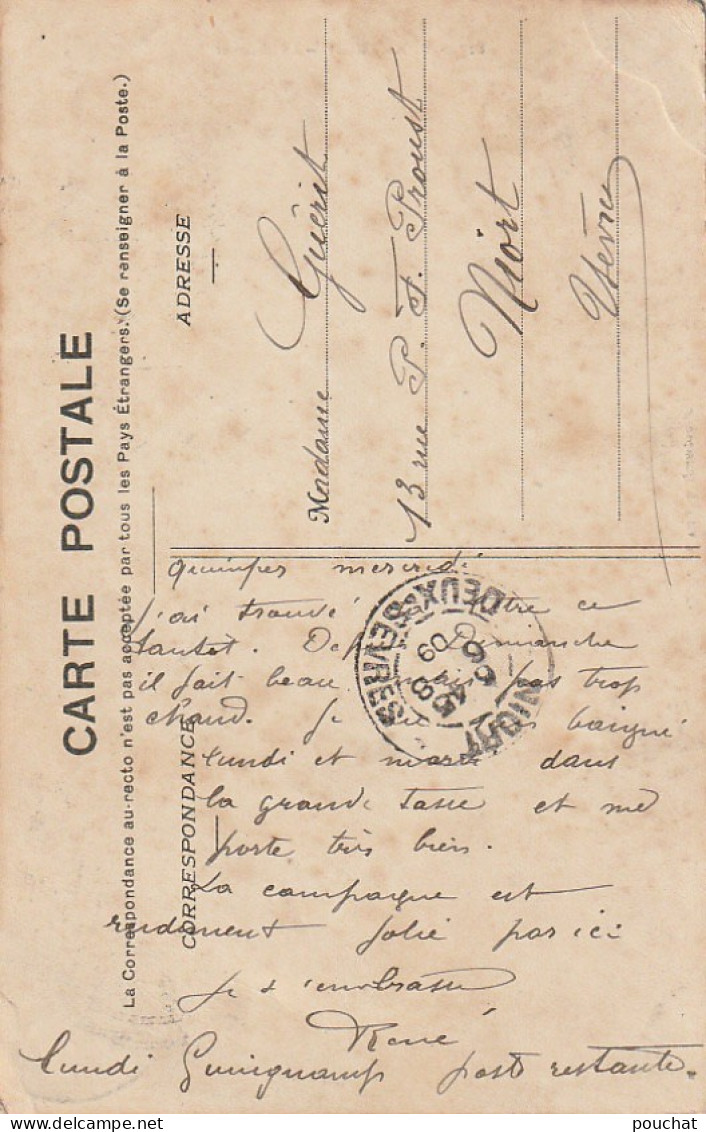 CARTE POSTALE
La Correspondance au recto n'est pas acceptée par tous les Pays Étrangers. (Se renseigner à la Poste.)
CORRESPONDANCE
ADRESSE
Madame Guérit
13 rue P. F. Proust
Niort
2 Sèvres
NIORT
DEUX-SEVRES
6 45
8
09
Quimper mercredi
J'ai trouvé ce
tantot. Depuis Dimanche
il fait beau mais pas trop
chaud. Je me suis baigné
lundi et mardi dans
la grande tasse et me
porte très bien.
La campagne est
rudement jolie par ici
Je t'embrasse
René
lundi Guingamp poste restante.
pouchat